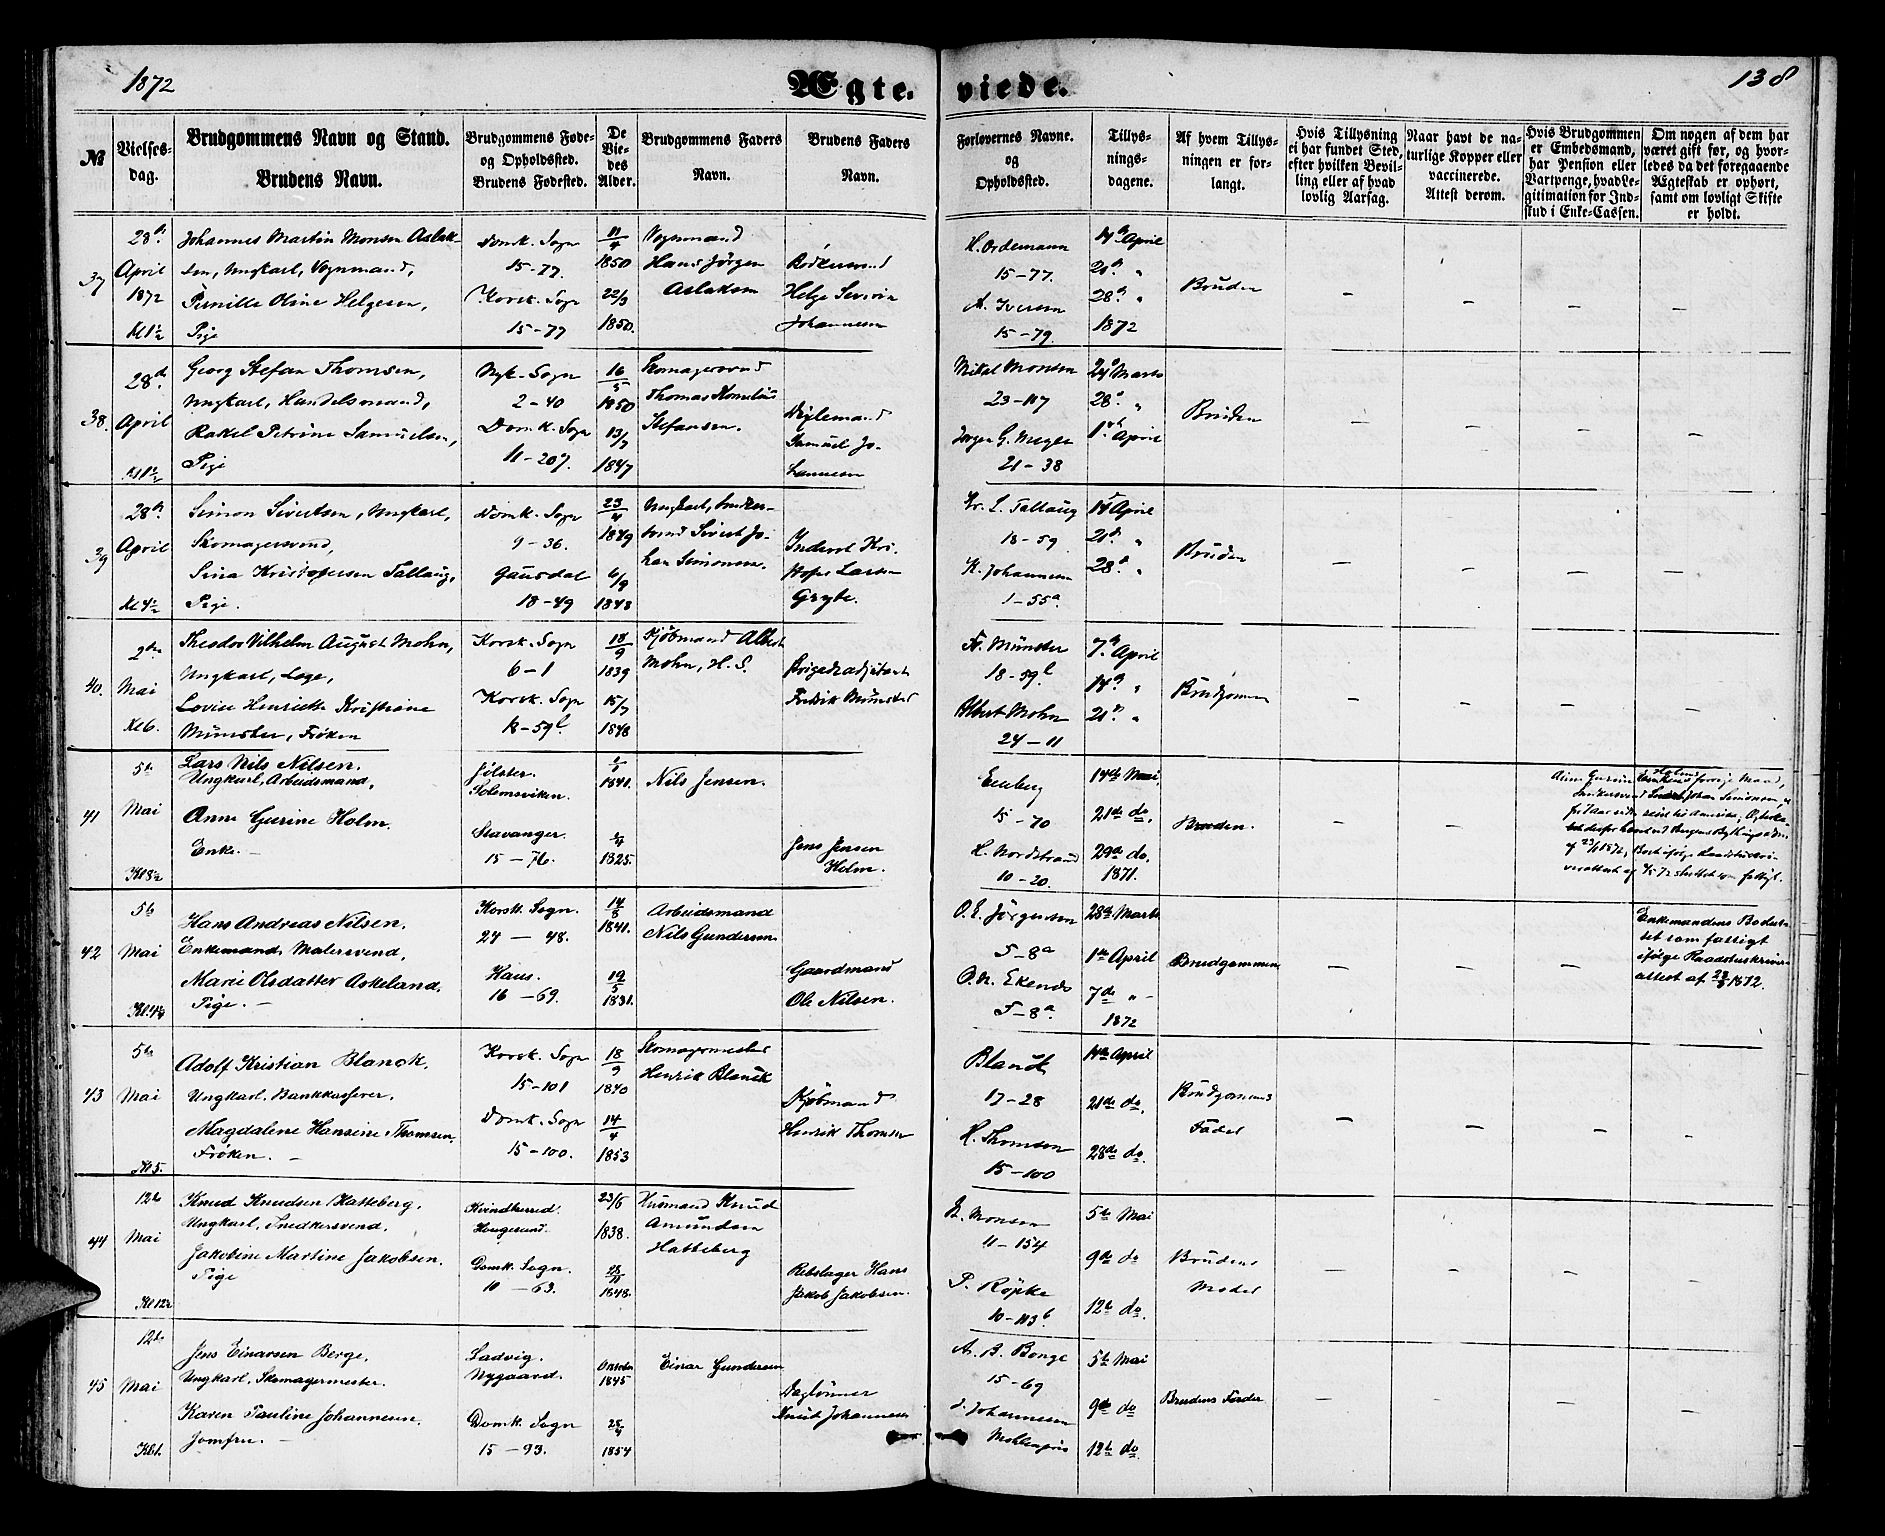 1872
Ægte.
viede.
138
№
Vielses-
dag.
Brudgommens Navn og Stand.
Brudens Navn.
Brudgommens Føde-
og Opholdssted.
Brudens Fødested.
De
Vie-
des
Alder.
Brudgommens Faders
Navn.
Brudens Faders
Navn.
Forlovernes Navne.
og
Opholdssted.
Tillys-
nings-
dagene.
Af hvem Tillys-
ningen er for-
langt.
Hvis Tillysning
ei har fundet Sted,
efter hvilken Bevil-
ling eller af hvad
lovlig Aarsag.
Naar havt de na-
turlige Kopper eller
vaccinerede.
Attest derom.
Hvis Brudgommen
er Embedsmand,
har Pension eller
Vartpenge, hvad Le-
gitimation for Ind-
stud i Enke-Cassen.
Om nogen af dem har
været gift før, og hvor-
ledes da det foregaaende
Ægteskab er ophørt,
samt om lovligt Skifte
er holdt.
37
28de
April
1872
Kl 1½
Johannes Martin Monsen Aslak-
sen, Ungkarl, Vognmand,
Pernille Oline Helgesen,
Pige
Domk. Sogn
15-77.
Korsk. Sogn
15-77
11/4
1850
22/3
1850.
Vognmand
Hans Jörgen
Aslaksen
Bödkersvend
Helge Severin
Johannesen
H. Ordemann
15-77.
A. Iversen
15-79.
14de April
21de "
28de "
1872
Bruden
38.
28de
April
Kl 1½
Georg Stefan Thomsen,
Ungkarl, Handelsmand,
Rakel Petrine Samuelsen,
Pige
Nyk. Sogn
2-40
Domk. Sogn
11-207.
16/5
1850
13/7
1847
Skomagersvend
Thomas Kornelius
Stefansen.
Samuel Jo-
hannesen
Mikal Monsen
23-117
Jörgen G. Meyer
21-38
24de Marts
28de "
1ste April
Bruden
39
28de
April
Kl 4½
Simon Sivertsen, Ungkarl,
Skomagersvend,
Sina Kristofersen Tallaug,
Pige.
Domk. Sogn
9-36.
Gausdal
18-49
23/4
1849
6/9
1848
Ungkarl, Snedker-
svend Sivert Jo-
han Simonsen.
Inderst Kri-
stofer Larsen
Gryte.
Kr. L. Tallaug
18-59
K. Johannesen
1-55a.
14de April
21de "
28de "
Bruden
40.
2den
Mai
Kl 6.
Theodor Vilhelm August Mohn,
Ungkarl, Læge,
Lovise Henriette Kristiane
Münster, Fröken
Korsk. Sogn
6-1
Korsk. Sogn
18-59b
18/9
1839
15/7
1848
Kjöbmand Albert
Mohn, H. S.
Brigadeadjutant
Fredrik Münster
Fr. Münster
18-59b
Albert Mohn
24-11
7de April
14de "
21de "
Brudgommen
41
5te
Mai
Kl 8½
Lars Nils Nilsen.
Ungkarl, Arbeidsmand,
Anne Gurine Holm.
Enke.
Jölster.
Solemsviken.
Stavanger.
15-76.
1841.
1825
Nils Jensen.
Jens Jensen
Holm.
Eenberg
15-70
H. Nordstrand
10-20.
14de Mai
21de do.
29de do.
1871.
Bruden.
42
5te
Mai
Hans Andreas Nilsen.
Enkemand, Malersvend,
Marie Olsdatter Askeland,
Pige.
Korsk. Sogn.
24-48.
Haus.
16-69.
14/8
1841.
19/5
1831.
Arbeidsmand
Nils Gundersen
Gaardmand
Ole Nilsen.
O. E. Jörgensen
5-8a
O. N. Ekends
5-8a.
28de Marts
1ste April
7de "
1872
Brudgommen
Enkemandens Bo slut-
tet som fattigt
ifölge Raadstueskriver-
attest af 22/3 1872.
43
5te
Mai
Kl 5.
Adolf Kristian Blanck,
Ungkarl, Bankkasserer,
Magdalene Hansine Thomsen,
Fröken.
Korsk. Sogn
15-101
Domk. Sogn
15-100.
18/9
1840
14/4
1853
Skomagermester
Henrik Blanck
Kjöbmand
Henrik Thomsen
Blanck
17-28
H. Thomsen
15-100
14de April
21de do.
28de do.
Brudgommens
Fader
44
12te
Mai
Kl 12½
Knud Knudsen Hatteberg,
Ungkarl, Snedkersvend,
Jakobine Martine Jakobsen.
Pige
Kvindherred.
Haugesund.
Domk. Sogn.
10-63.
23/6
1838.
28/11
1848.
Husmand Knud
Amundsen
Hatteberg
Rebslager Hans
Jakob Jakobsen.
B. Monsen
11-154
P. Röpke
10-113b.
5te Mai
9de do
12te do.
Brudens
Moder
45
12te
Mai
Kl 1.
Jens Einarsen Berge,
Ungkarl, Skomagermester.
Karen Pauline Johannesen.
Jomfru.
Ladvig.
Nygaard.
Domk. Sogn
15-93.
Oktober
1845
28/4
1854
Einar Gundersen
Daglönner
Knut Johannesen
A. B. Bonge
15-69
J. Johannesen
Möhlenpris
5te Mai
9de do
12te do
Brudens Fader